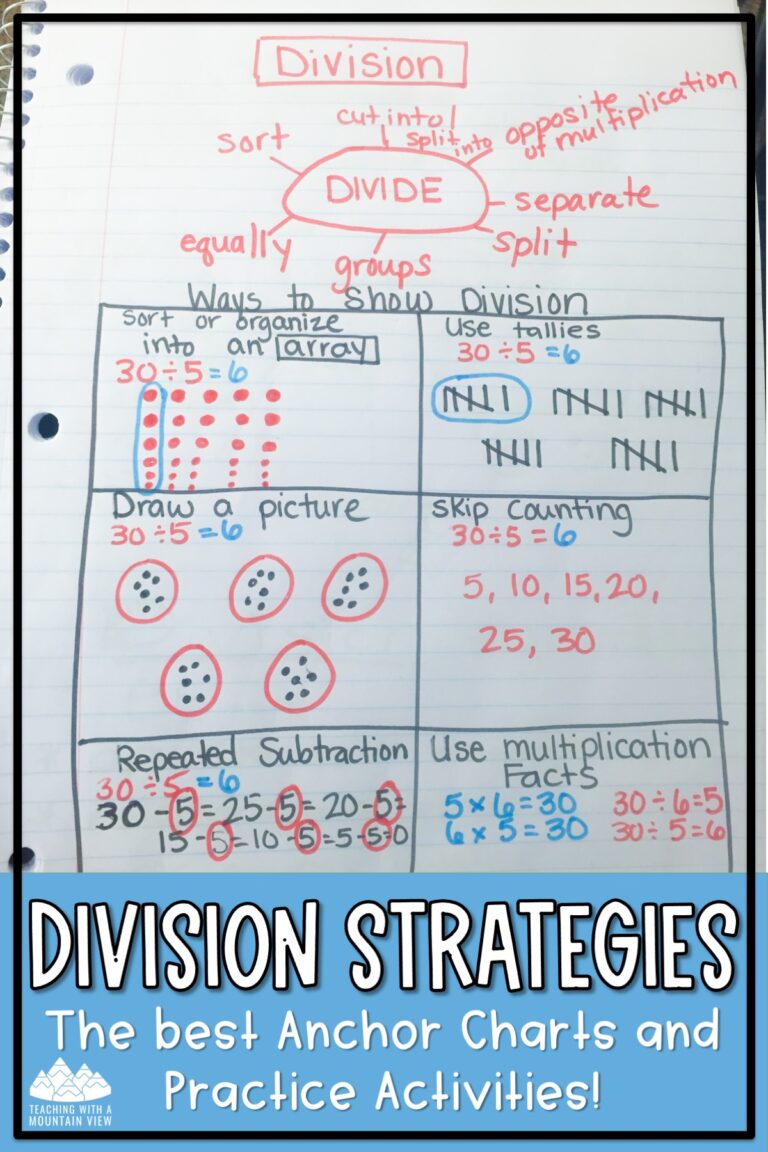 Division
cut into
sort
split into
opposite of multiplication
DIVIDE
separate
equally
groups
split
Ways to Show Division
Sort or organize
into an array
30÷5=6
Use tallies
30÷5=6
Draw a picture
30÷5=6
skip counting
30÷5=6
5, 10, 15, 20,
25, 30
Repeated Subtraction
30÷5=6
30-5=25-5=20-5=
15-5=10-5=5-5=0
Use multiplication
Facts
5×6=30 30÷6=5
6×5=30 30÷5=6
DIVISION STRATEGIES
The best Anchor Charts and
Practice Activities!
TEACHING WITH A
MOUNTAIN VIEW